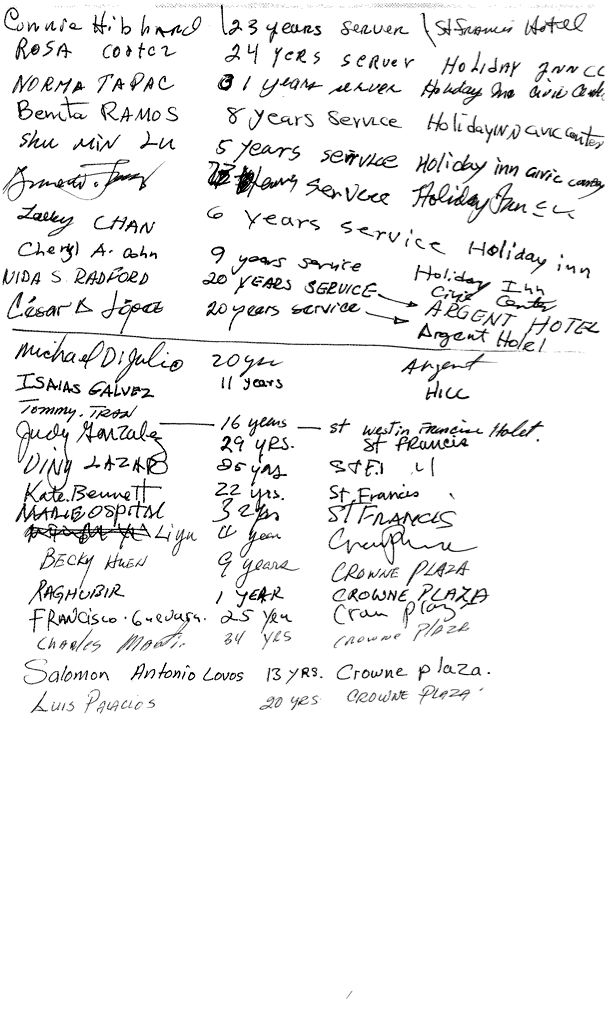 Connie Hibbard 23 years server St Francis Hotel
ROSA cortez 24 yers server Holiday INN CC
NORMA TAPAC 31 years server Holiday Inn Civic Cent.
Benita RAMOS 8 years Service Holiday INN civic center
Shu MIN LU 5 years service Holiday inn civic
years service Holiday Inn CC
CHAN 6 years service Holiday inn
Cheryl A. ohn 9 years service Holiday Inn Civic Center
NIDA S. RADFORD 20 YEARS SERVICE ARGENT HOTEL
César D López 20 years service Argent Hotel
Michael DiJulio 20 yrs Argent
ISAIAS GALVEZ 11 years
Tommy. TRAN 16 years st westin Francisc Hotel.
Judy Gonzalez 29 YRS. St FRANCIS
DINY LAZAR yrs
Kate Bennett 22 yrs. St. Francis
MARIE OSPITAL 32 yrs ST FRANCIS
Liyu 11 year
BECKY HUEN 9 years CROWNE PLAZA
RAGHUBIR 1 YEAR CROWNE PLAZA
FRANCISCO. Guevara. 25 Yea Crown plaz
CHARLES 34 YRS CROWNE PLAZA
Salomon Antonio Lovos 13 YRS. Crowne plaza.
LUIS PALACIOS 20 YRS CROWNE PLAZA